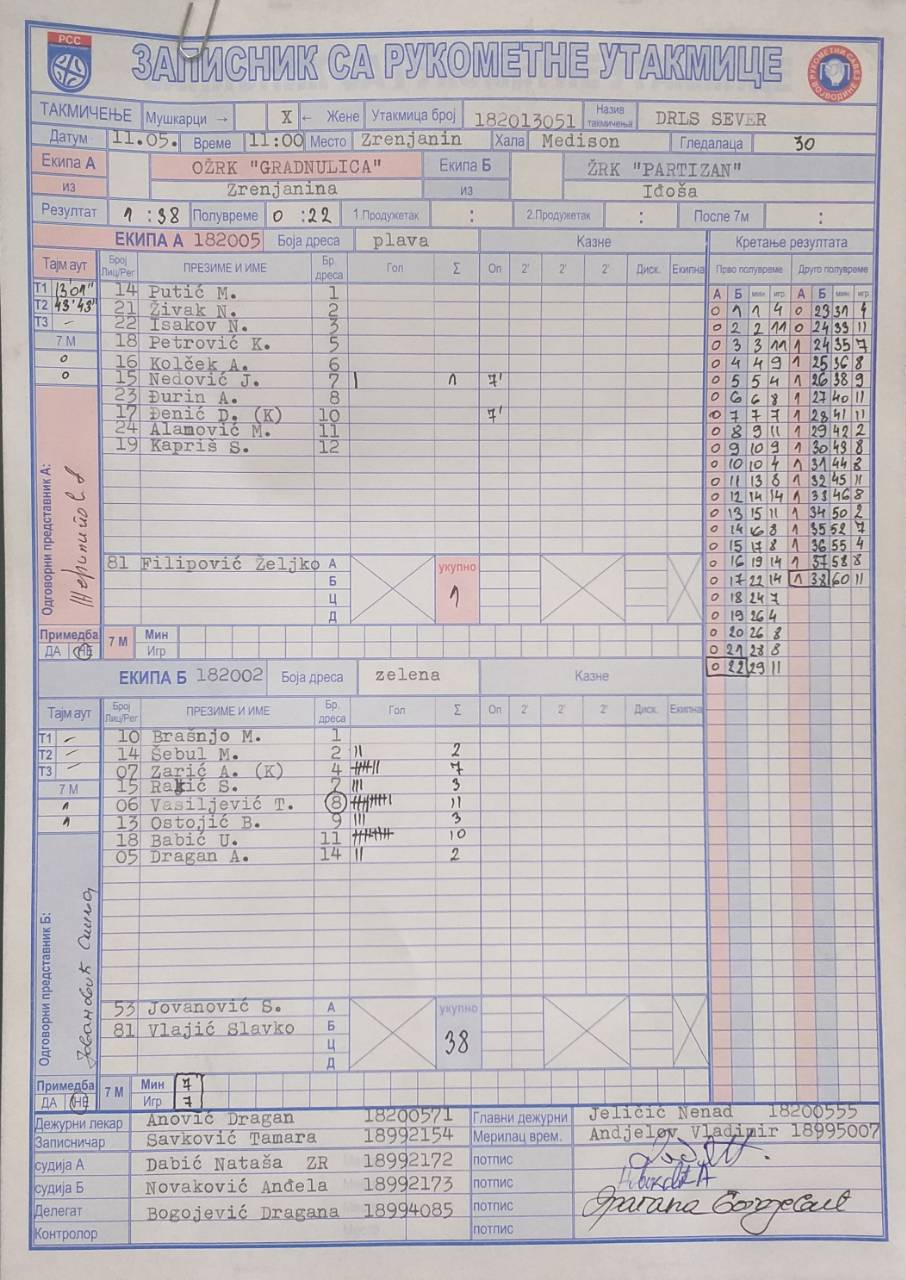 РСС
ЗАПИСНИК СА РУКОМЕТНЕ УТАКМИЦЕ
ТАКМИЧЕЊЕ Мушкарци → X ← Жене Утакмица број 182013051 Назив такмичења DRLS SEVER
Датум 11.05. Време 11:00 Место Zrenjanin Хала Medison Гледалаца 30
Екипа А OŽRK "GRADNULICA" Екипа Б ŽRK "PARTIZAN"
из Zrenjanina из Iđoša
Резултат 1 : 38 Полувреме 0 : 22 1.Продужетак : 2.Продужетак : После 7м :
ЕКИПА А 182005 Боја дреса plava Казне Кретање резултата
Тајм аут Број Лиц/Рег ПРЕЗИМЕ И ИМЕ Бр. дреса Гол Σ Оп 2' 2' 2' Диск. Екипна Прво полувреме Друго полувреме
А Б мин игр. А Б мин игр.
T1 13'01" 14 Putić M. 1
T2 43'43" 21 Živak N. 2
T3 – 22 Isakov N. 3
7 М 18 Petrović K. 5
0 16 Kolček A. 6
0 15 Nedović J. 7 | 1 7'
23 Đurin A. 8
17 Đenić D. (K) 10 7'
24 Alamović M. 11
19 Kapriš S. 12
Одговорни представник А:
81 Filipović Željko А
Б
Ц
Д
укупно
1
0 1 1 4 0 23 31 4
0 2 2 11 0 24 33 11
0 3 3 11 1 24 35 7
0 4 4 9 1 25 36 8
0 5 5 4 1 26 38 9
0 6 6 8 1 27 40 11
0 7 7 7 1 28 41 11
0 8 9 11 1 29 42 2
0 9 10 9 1 30 43 8
0 10 10 4 1 31 44 8
0 11 13 8 1 32 45 11
0 12 14 14 1 33 46 8
0 13 15 11 1 34 50 2
0 14 16 8 1 35 52 7
0 15 17 8 1 36 55 4
0 16 19 14 1 37 58 8
0 17 22 14 1 38 60 11
0 18 24 7
0 19 26 4
0 20 26 8
0 21 28 8
0 22 29 11
Примедба ДА НЕ 7 М Мин
Игр
ЕКИПА Б 182002 Боја дреса zelena Казне
Тајм аут Број Лиц/Рег ПРЕЗИМЕ И ИМЕ Бр. дреса Гол Σ Оп 2' 2' 2' Диск. Екипна
T1 – 10 Brašnjo M. 1
T2 – 14 Šebul M. 2 || 2
T3 – 07 Zarić A. (K) 4 7
7 М 15 Rakić S. 7 ||| 3
1 06 Vasiljević T. 8 11
1 13 Ostojić B. 9 ||| 3
18 Babić U. 11 10
05 Dragan A. 14 || 2
Одговорни представник Б:
53 Jovanović S. А
81 Vlajić Slavko Б
Ц
Д
укупно
38
Примедба ДА НЕ 7 М Мин 7
Игр 7
Дежурни лекар Anović Dragan 18200571 Главни дежурни Jeličić Nenad 18200555
Записничар Savković Tamara 18992154 Мерилац врем. Andjelov Vladimir 18995007
судија А Dabić Nataša ZR 18992172 потпис
судија Б Novaković Anđela 18992173 потпис
Делегат Bogojević Dragana 18994085 потпис
Контролор потпис